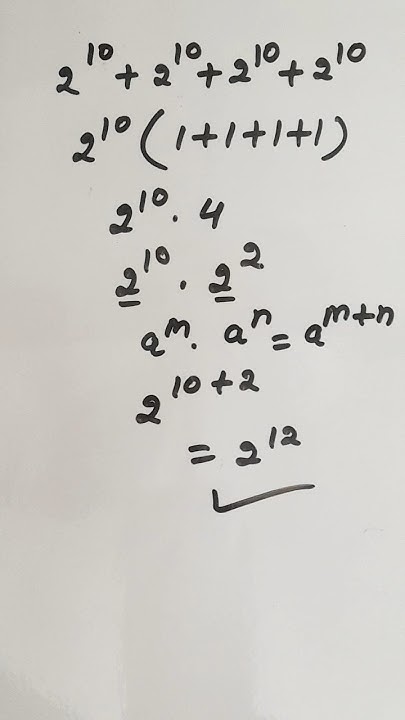 2¹⁰ + 2¹⁰ + 2¹⁰ + 2¹⁰
2¹⁰ (1+1+1+1)
2¹⁰ . 4
2¹⁰ . 2²
aᵐ . aⁿ = aᵐ⁺ⁿ
2¹⁰⁺²
= 2¹²